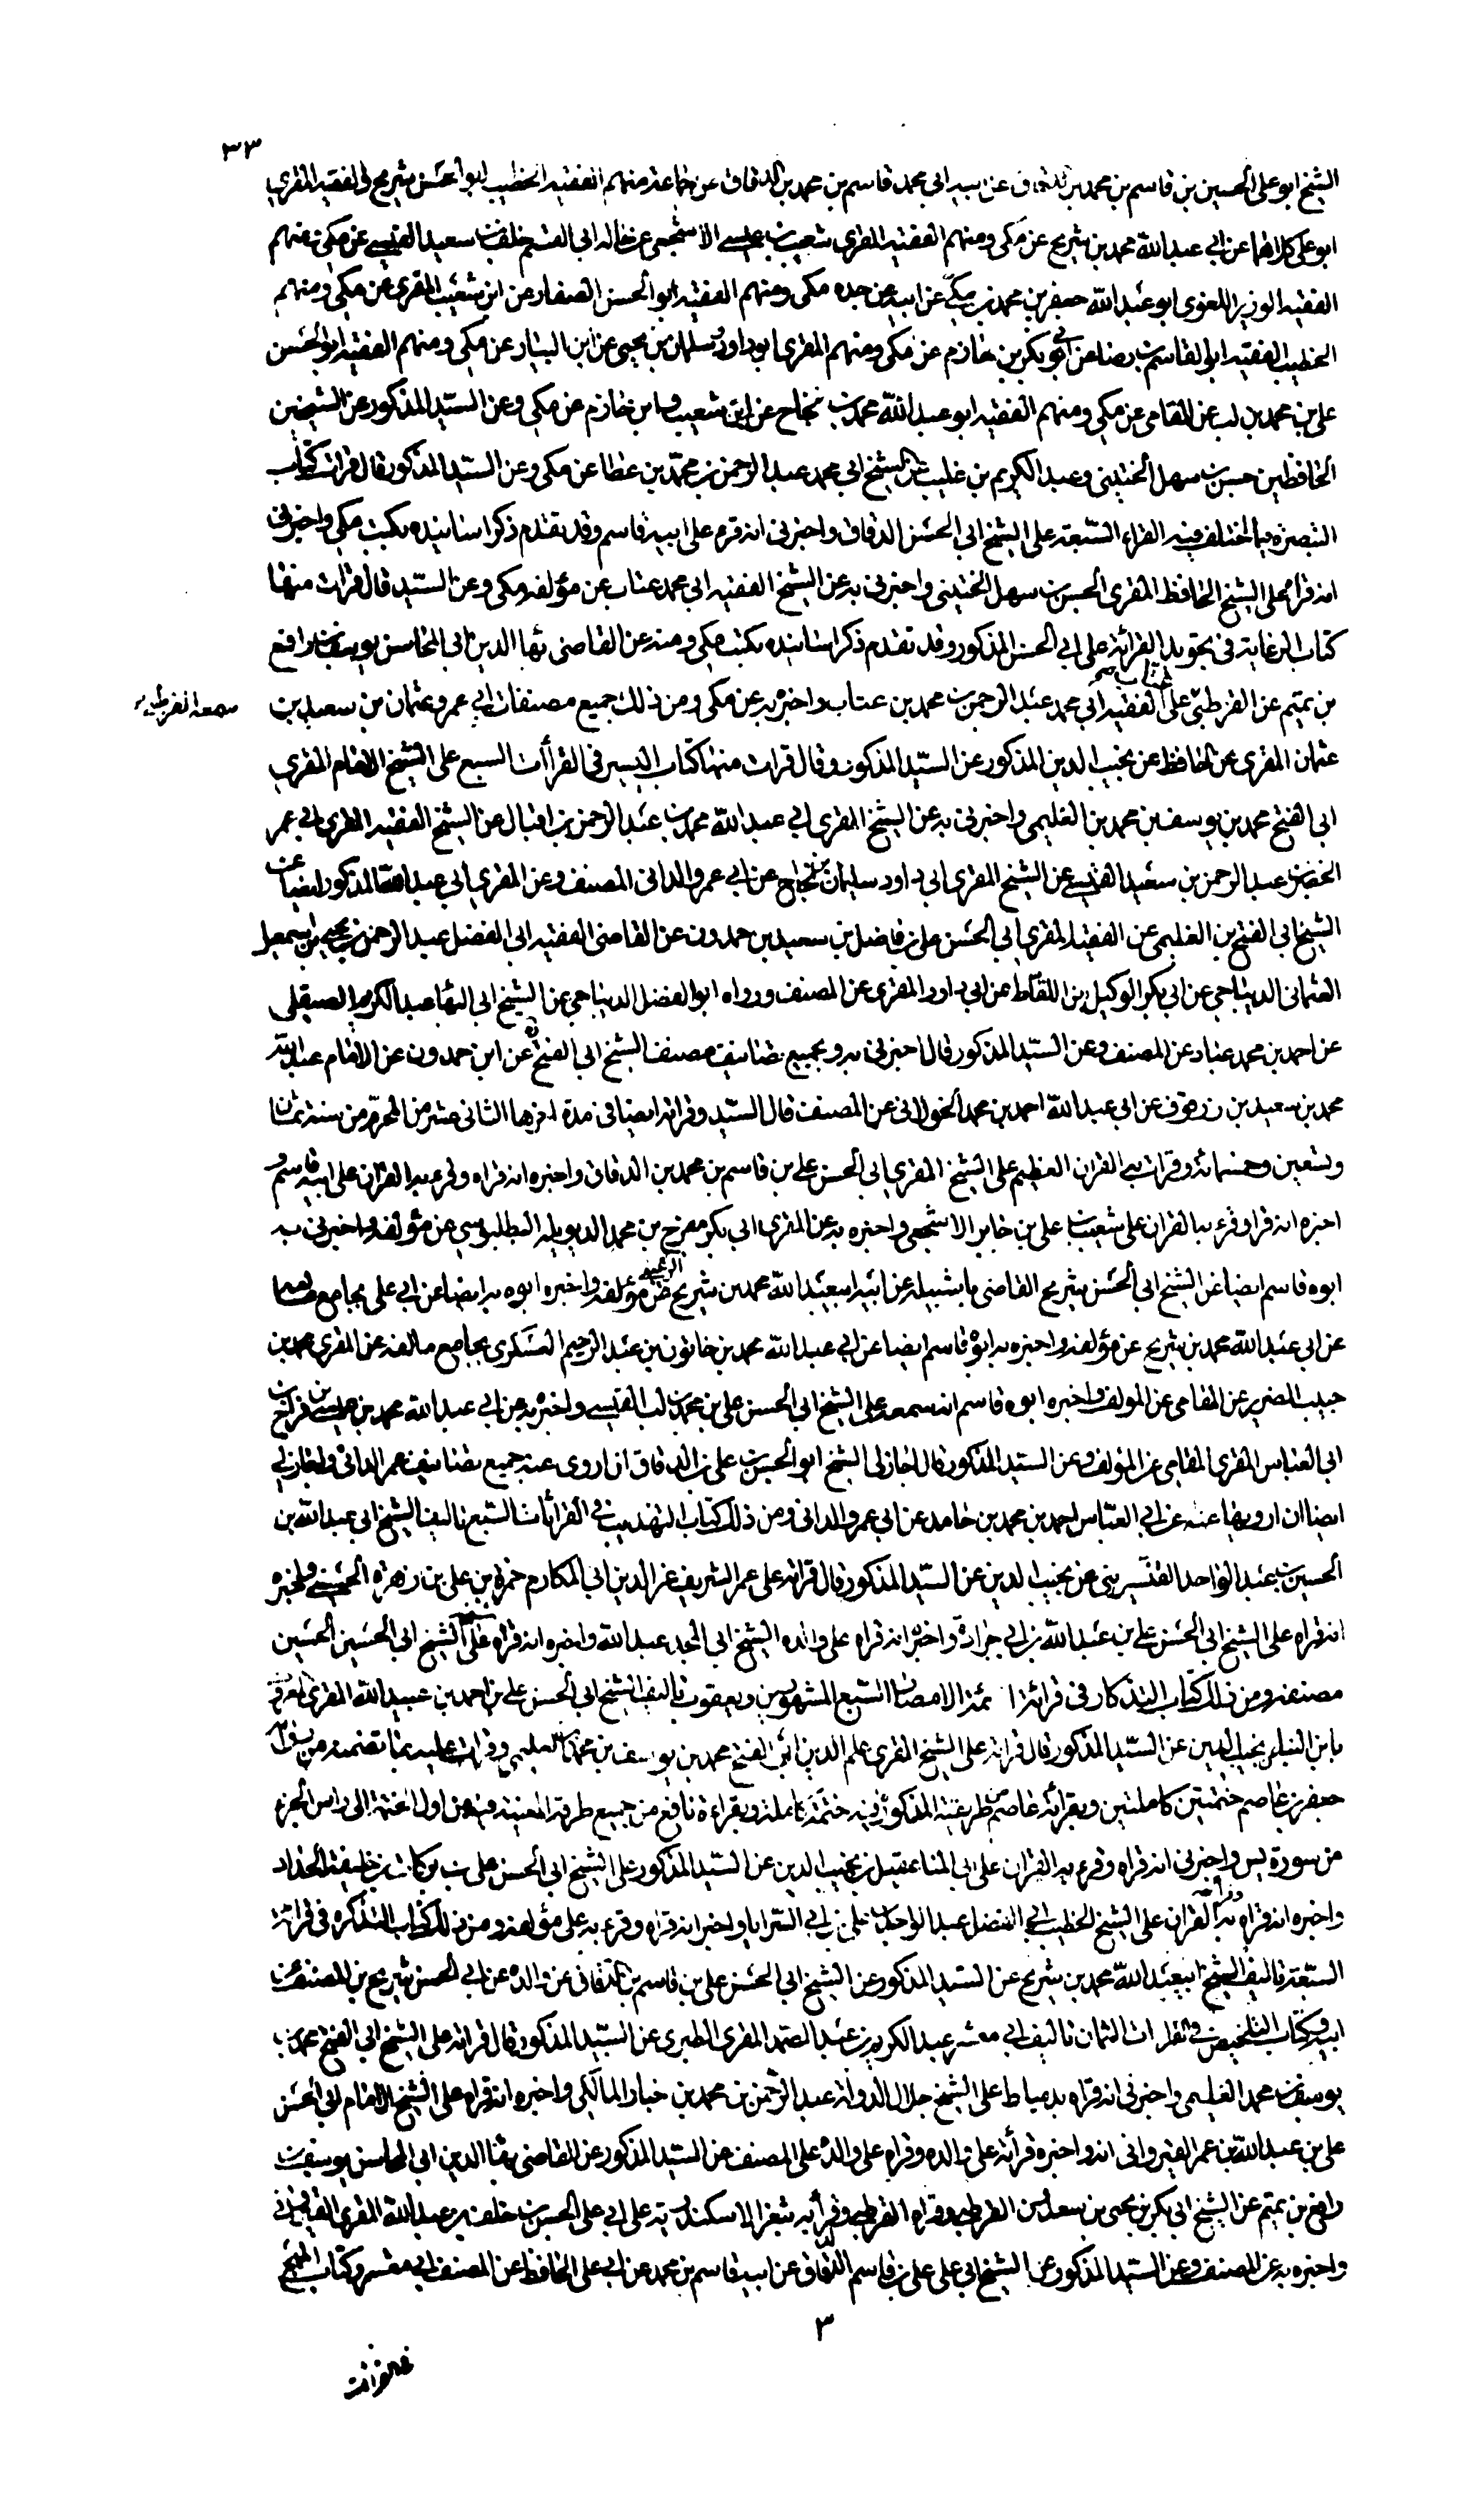 ٣٣
الشيخ ابو على الحسين بن قاسم بن محمد بن الدقاق عن ابيه ابي محمد قاسم بن محمد بن الدقاق عن جماعة منهم الفقيه الخطيب ابوالحسن شريح والفقيه المقري
ابو على كلاهما عن ابي عبد الله محمد بن شريح عن مكي ومنهم الفقيه المقري شعيب بن عيسى الاشجعي عن خاله ابي القسم خلف بن سعيد القيسي عن مكي ومنهم
الفقيه الوزير اللغوي ابو عبد الله جعفر بن محمد بن مكي عن ابيه عن جده مكي ومنهم الفقيه ابو الحسن الصفار عن ابن شعيب المقري عن مكي ومنهم
الخطيب الفقيه ابو القاسم بن رضا عن ابي بكر بن خازم عن مكي ومنهم المقري ابو داود وسلمان بن يحيى عن ابن البياز عن مكي ومنهم الفقيه ابو الحسن
على بن محمد بن لب عن المقامي عن مكي ومنهم الفقيه ابو عبد الله محمد بن نجاح عن ابن شعيب وابن خازم عن مكي وعن السيد المذكور عن الشيخين
الحافظين حسن بن سهل الخشيني وعبد الكريم بن غليب عن الشيخ ابي محمد عبد الرحمن بن محمد بن عطا عن مكي وعن السيد المذكور قال قرات كتاب
التبصرة فيما اختلف فيه القراء السبعة على الشيخ ابي الحسن الدقاق واخبرني انه قرء على ابيه قاسم وقد تقدم ذكر اسانيده بكتب مكي واخبرني
انه قراه على الشيخ الحافظ المقري الحسن بن سهل الخشيني واخبرني به عن الشيخ الفقيه ابي محمد عتاب عن مؤلفه مكي وعن السيد قال قرات منها
كتاب الرعاية في تجويد القرائة على ابي الحسن المذكور وقد تقدم ذكر اسانيده بكتب مكي ومنه عن القاضي بها الدين ابي المحاسن يوسف بن رافع
بن تميم عن القرطبي على الفقيه ابي محمد عبد الرحمن بن محمد بن عتاب واخبره به عن مكي ومن ذلك جميع مصنفات ابي عمرو عثمان بن سعيد بن
عثمان المقري عن الحافظ عن نجيب الدين المذكور عن السيد المذكور وقال قرات منها كتاب التيسير في القراآت السبع على الشيخ الامام المقري
ابي الفتح محمد بن يوسف بن محمد بن العليمي واخبرني به عن الشيخ المقري ابي عبد الله محمد بن عبد الرحمن بن اقبال عن الشيخ الفقيه المقري ابي عمر
الخضر بن عبد الرحمن بن سعيد القيسي عن الشيخ المقري ابي داود سليمان بن نجاح عن ابي عمرو الداني المصنف وعن المقري ابي عبد الله المذكور ايضا عن
الشيخ ابي الفتح بن العليمي عن الفقيه المقري ابي الحسن على بن فاضل بن سعيد بن حمدون عن القاضي الفقيه ابي الفضل عبد الرحمن بن يحيى بن اسمعيل
العثماني الديباجي عن ابي بكر الوكيل بن اللقاط عن ابي داود المقري عن المصنف ورواه ابو الفضل الديباجي عن الشيخ ابي البهاء عبد الكريم الصيقلي
عن احمد بن محمد عباد عن المصنف وعن السيد المذكور قال اخبرني به وبجميع تصانيف مصنفه الشيخ ابي الفتح عن ابن حمدون عن الامام عبد الله
محمد بن سعيد بن زرقون عن ابي عبد الله احمد بن محمد الخولاني عن المصنف قال السيد وقراته ايضا في مدة اخرها الثاني عشر من المحرم من سنة ثمان
وتسعين وخمسمائة وقرات به القران العظيم على الشيخ المقري ابي الحسن على بن قاسم بن محمد بن الدقاق واخبره انه قراه وقرء به القران على ابيه قاسم و
اخبره انه قراه وقرء به القران على شعيب بن على بن جابر الاشجعي واخبره به عن المقري ابي بكر مفرح بن محمد البطليوسي عن مؤلفه واخبرني به
ابوه قاسم ايضا عن الشيخ ابي الحسن شريح القاضي باشبيلة عن ابيه ابي عبد الله محمد بن شريح الرعيني عن مؤلفه واخبره ابوه به ايضا عن ابي على بجامع
عن ابي عبد الله محمد بن شريح عن مؤلفه واخبره به ابوه قاسم ايضا عن ابي عبد الله محمد بن خاتون بن عبد الرحيم العسكري بجامع مالقه عن المقري محمد بن
حبيب الضرير عن المقامي عن المولف واخبره ابوه قاسم انه سمعه على الشيخ ابي الحسن على بن محمد بن لب القيسي واخبره به عن ابي عبد الله محمد بن عيسى بن فرج
ابي العباس المقري المقامي عن المؤلف وعن السيد المذكور قال اجاز لي الشيخ ابو الحسن على بن الدقاق ان اروى عنه جميع تصانيف عمر الداني واجاز لي
ايضا ان ارويها عنه عن ابي العباس احمد بن محمد بن حامد عن ابي عمرو الداني ومن ذلك كتاب التهذيب في القراآت السبع تاليف الشيخ ابي عبد الله بن
الحسين بن عبد الواحد القنسريني عن نجيب الدين عن السيد المذكور قال قراته على عمر الشريف عز الدين ابي المكارم حمزة بن على بن زهرة الحسيني واخبره
انه قراه على الشيخ ابي الحسن على بن عبد الله بن ابي جرادة واخبره انه قراه على والده الشيخ ابي المجد عبد الله واخبره انه قراه على الشيخ ابي الحسين الحسين
مصنفه ومن ذلك كتاب التذكار في قرائة ائمة الامصار السبع المشهورين ويعقوب تاليف الشيخ ابي الحسن على بن احمد بن عبيد الله المقري
نجيب الدين عن السيد المذكور قال قراته على الشيخ المقري علم الدين ابي الفتح محمد بن يوسف بن محمد العليمي وقرات عليه بما تضمنه من
جعفر بن عاصم ختمتين كاملتين وبقرائة عاصم من طريقيه المذكور فيه ختمة كاملة وبقراءة نافع من جميع طرقه المعينة فيه من اول الى راس الجزء
من سورة يس واخبرني انه قراه وقرء به القران على ابي المنا عقيل بن نجيب الدين عن السيد المذكور على الشيخ ابي الحسن على بن بركات بن خليفة الحداد
واخبره انه قراه به القران على الشيخ الخطيب ابي الفضل عبد الواحد بن على بن ابي السرايا واخبر انه قراه وقرء به على مؤلفه ومن ذلك كتاب التذكرة في قرائة
السبعة تاليف الشيخ ابي عبد الله محمد بن شريح عن السيد المذكور عن الشيخ ابي الحسن على بن قاسم بن الدقاق عن والده عن ابي الحسن شريح بن المصنف عن
ابيه وكتاب التلخيص في القراءات الثمان تاليف ابي معشر عبد الكريم بن عبد الصمد المقري الطبري عن السيد المذكور قال قراته على الشيخ ابي الفتح محمد بن
يوسف بن محمد العليمي واخبرني انه قراه بدمياط على الشيخ جلال الدولة عبد الرحمن بن محمد بن خبار المالكي واخبره انه قراه على الشيخ الامام ابي الحسن
على بن عبد الله بن عمر القيرواني انه واخبره قرأته على والده وقراه على والده على المصنف عن السيد المذكور عن القاضي بها الدين ابي المحاسن يوسف بن
رافع بن تميم عن الشيخ ابي بكر بن يحيى بن سعدون القرطبي وقراه القرطبي وقرأ به بثغر الاسكندرية على ابي على الحسن بن خلف بن عبد الله المقري القيرواني
واخبره به عن المصنف وعن السيد المذكور عن الشيخ ابي على على بن قاسم الدقاق عن ابيه قاسم بن محمد عن ابي على الحافظ عن المصنف ابي معشر وكتاب المبهج
٣